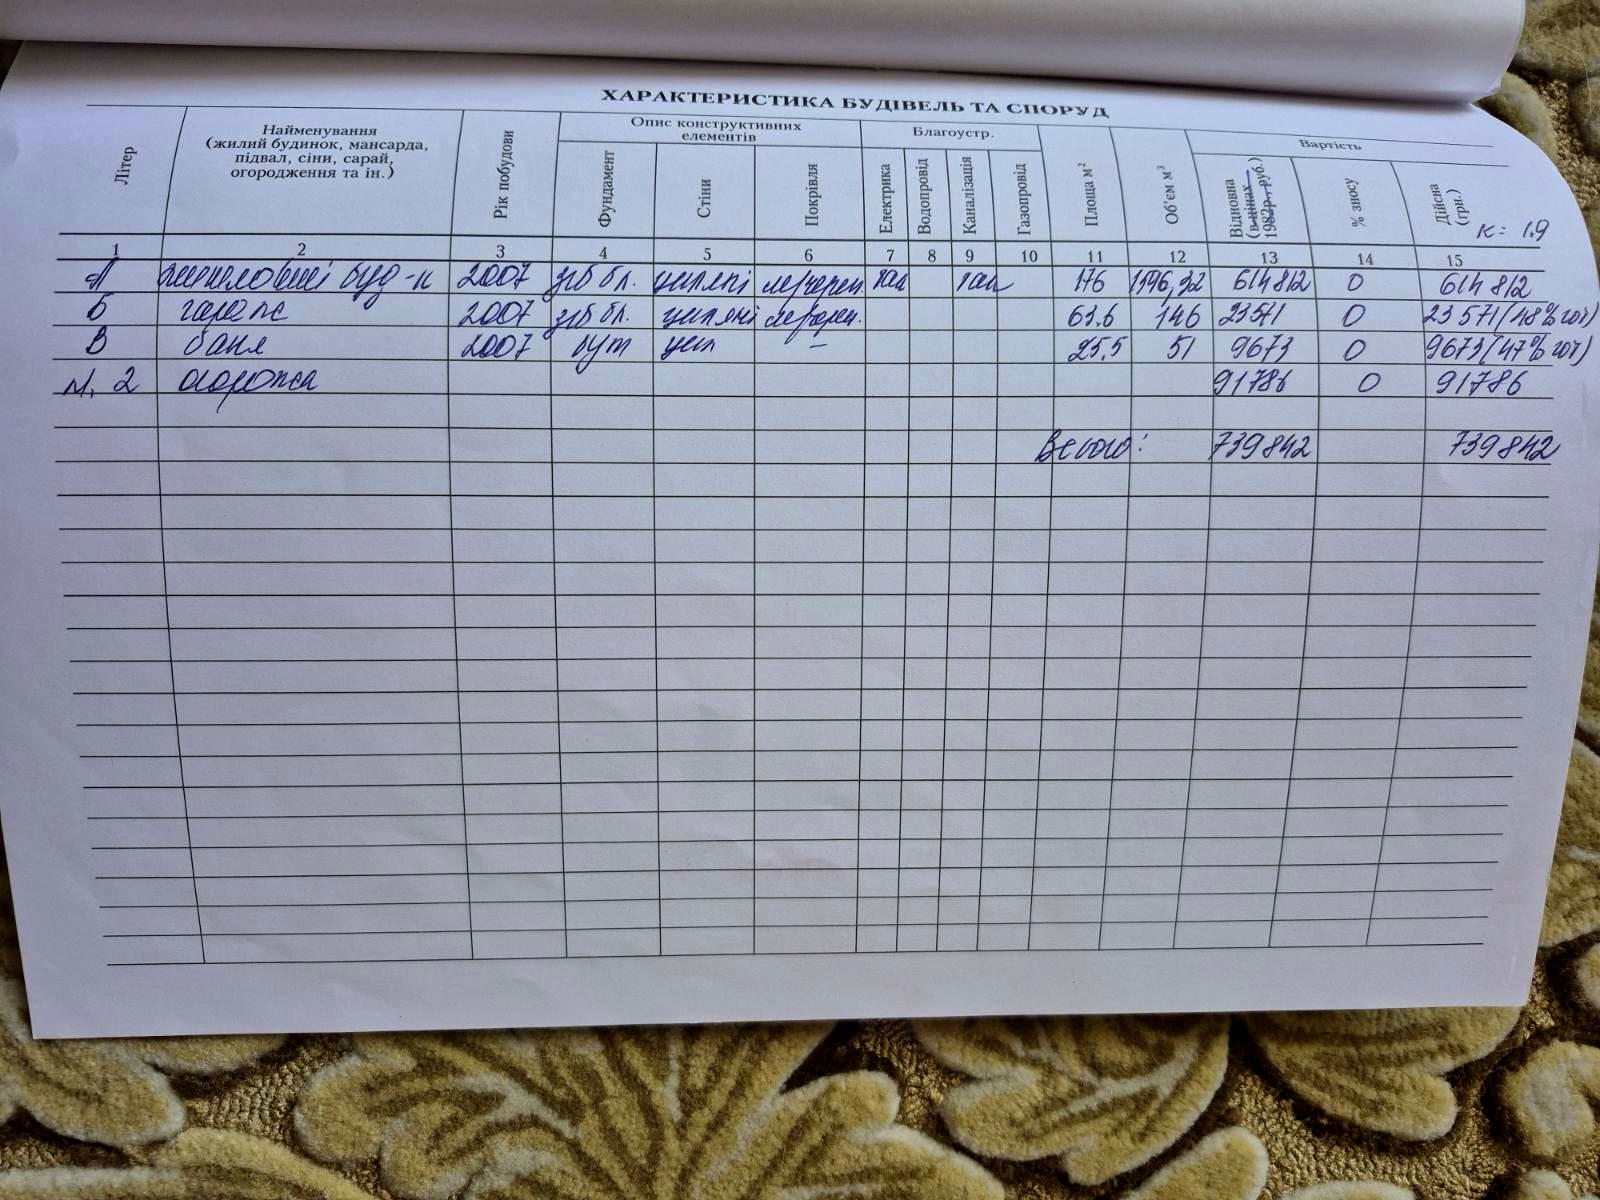 ХАРАКТЕРИСТИКА БУДІВЕЛЬ ТА СПОРУД
Літер
Найменування
(жилий будинок, мансарда,
підвал, сіни, сарай,
огородження та ін.)
Рік побудови
Опис конструктивних
елементів
Фундамент
Стіни
Покрівля
Благоустр.
Електрика
Водопровід
Каналізація
Газопровід
Площа м²
Об'єм м³
Вартість
Відновна
(в цінах
1982р., руб.)
% зносу
Дійсна
(грн.)
к= 1.9
1 2 3 4 5 6 7 8 9 10 11 12 13 14 15
А житловий буд-к 2007 з/б бл. цегляні 176 614812 0 614812
Б гараж 2007 з/б бл. цегляні 63.6 146 23571 0 23571 (48% гот)
В баня 2007 бут цег – 25,5 51 9673 0 9673 (47% гот)
N1, 2 огорожа 91786 0 91786
Всього: 739842 739842